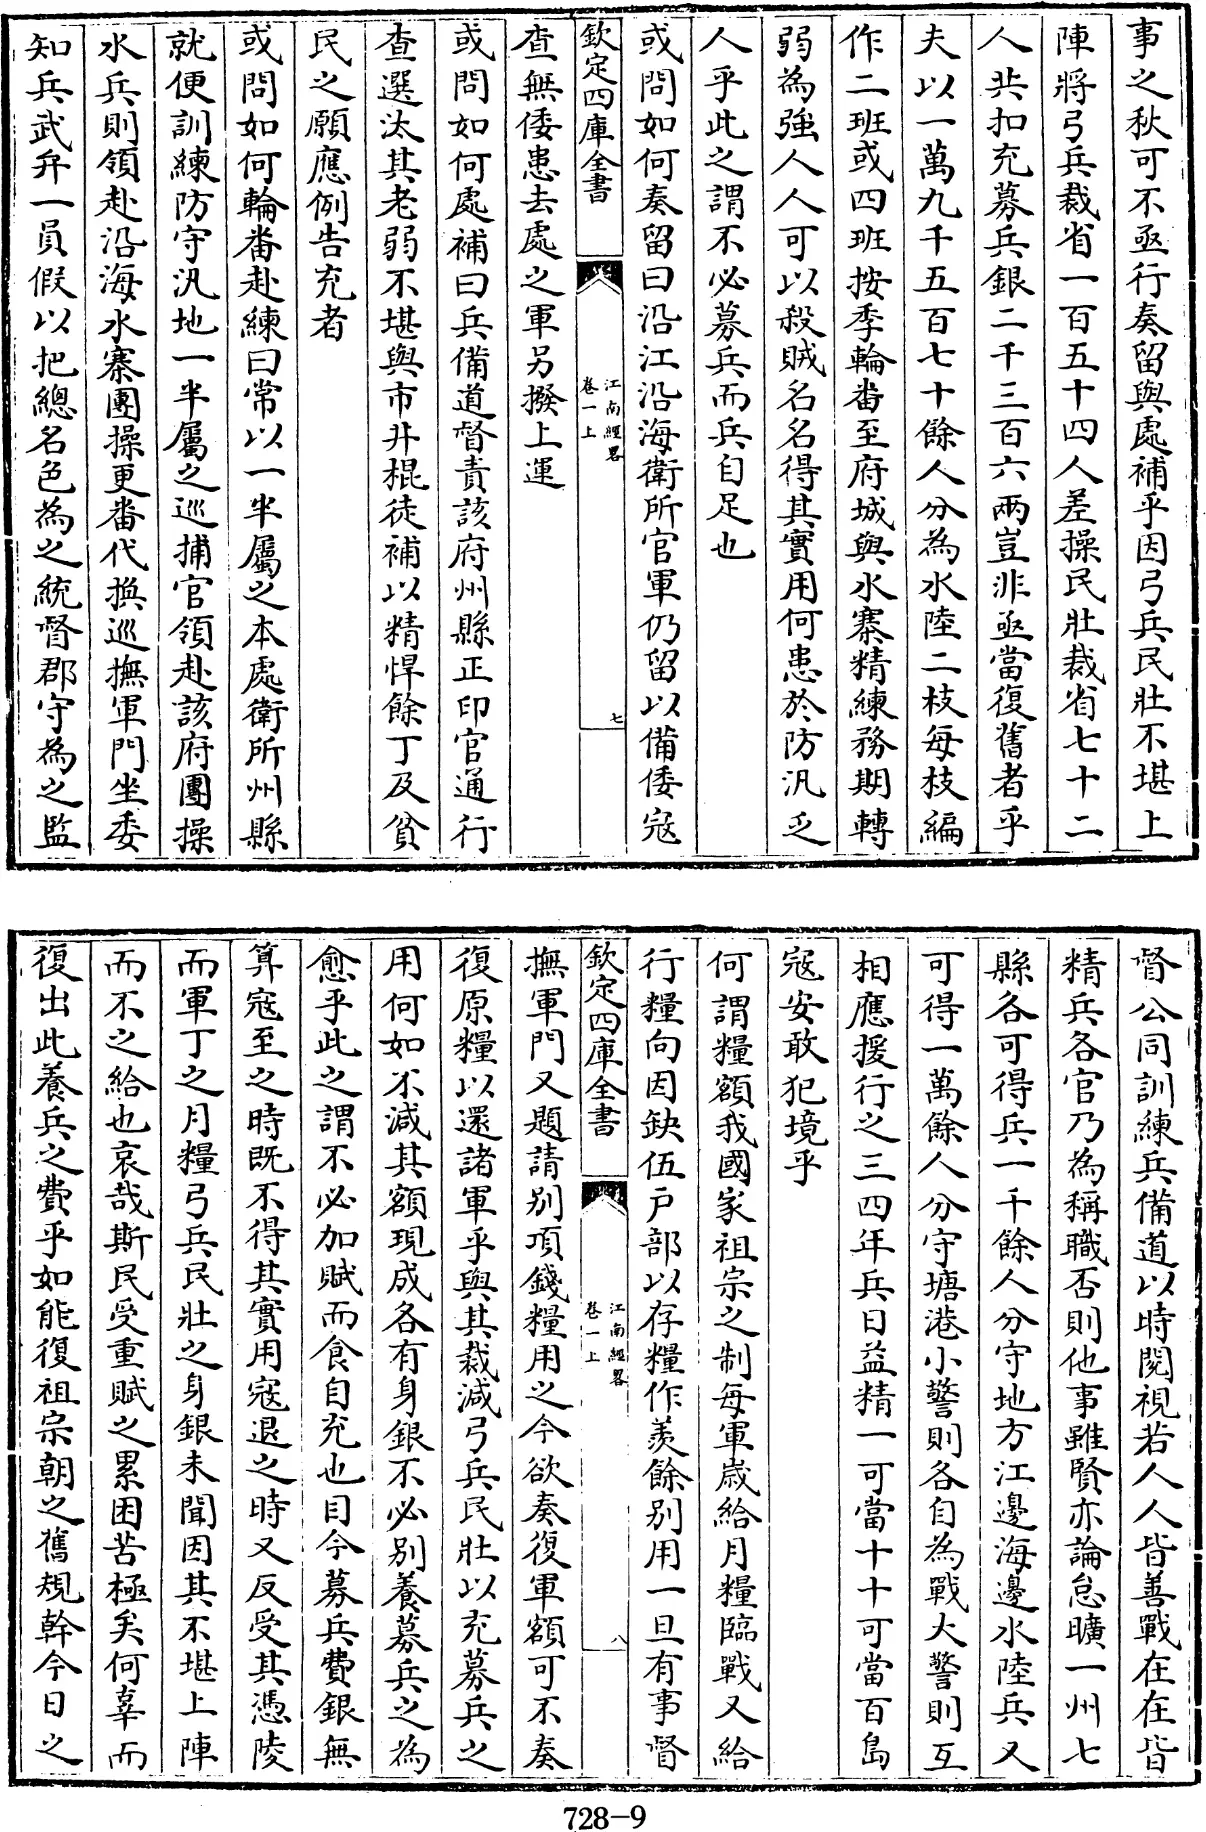 事之秋可不亟行奏留與處補乎因弓兵民壯不堪上
陣將弓兵裁省一百五十四人差操民壯裁省七十二
人共扣充募兵銀二千三百六兩豈非亟當復舊者乎
夫以一萬九千五百七十餘人分為水陸二枝每枝編
作二班或四班按季輪畨至府城與水寨精練務期轉
弱為強人人可以殺賊名名得其實用何患於防汛乏
人乎此之謂不必募兵而兵自足也
或問如何奏留曰沿江沿海衛所官軍仍留以備倭寇
欽定四庫全書
江南經畧
卷一上
七
查無倭患去處之軍另撥上運
或問如何處補曰兵備道督責該府州縣正印官通行
查選汰其老弱不堪與市井棍徒補以精悍餘丁及貧
民之願應例告充者
或問如何輪畨赴練曰常以一半屬之本處衛所州縣
就便訓練防守汛地一半屬之巡捕官領赴該府團操
水兵則領赴沿海水寨團操更畨代換巡撫軍門坐委
知兵武弁一員假以把總名色為之統督郡守為之監
督公同訓練兵備道以時閱視若人人皆善戰在在皆
精兵各官乃為稱職否則他事雖賢亦論怠曠一州七
縣各可得兵一千餘人分守地方江邊海邊水陸兵又
可得一萬餘人分守塘港小警則各自為戰大警則互
相應援行之三四年兵日益精一可當十十可當百島
寇安敢犯境乎
何謂糧額我國家祖宗之制每軍歲給月糧臨戰又給
行糧向因缺伍戶部以存糧作羨餘別用一旦有事督
欽定四庫全書
江南經畧
卷一上
八
撫軍門又題請別項錢糧用之今欲奏復軍額可不奏
復原糧以還諸軍乎與其裁減弓兵民壯以充募兵之
用何如不減其額現成各有身銀不必別養募兵之為
愈乎此之謂不必加賦而食自充也目今募兵費銀無
算寇至之時既不得其實用寇退之時又反受其憑陵
而軍丁之月糧弓兵民壯之身銀未聞因其不堪上陣
而不之給也哀哉斯民受重賦之累困苦極矣何辜而
復出此養兵之費乎如能復祖宗朝之舊規幹今日之
728-9